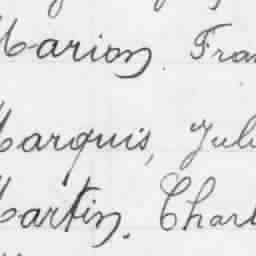 Marion. Fran
Marquis, Juli
Martin. Charl